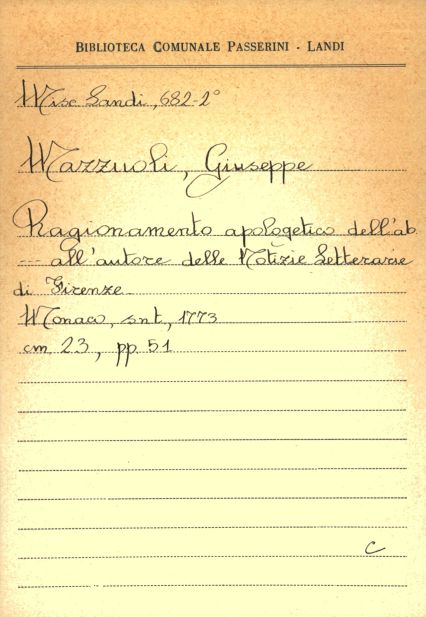 BIBLIOTECA COMUNALE PASSERINI - LANDI
Misc Landi, 682-2°
Mazzuoli, Giuseppe
Ragionamento apologetico dell'ab.
--- all'autore delle Notizie Letterarie
di Firenze
Monaco, snt, 1773
cm 23, pp. 51
C